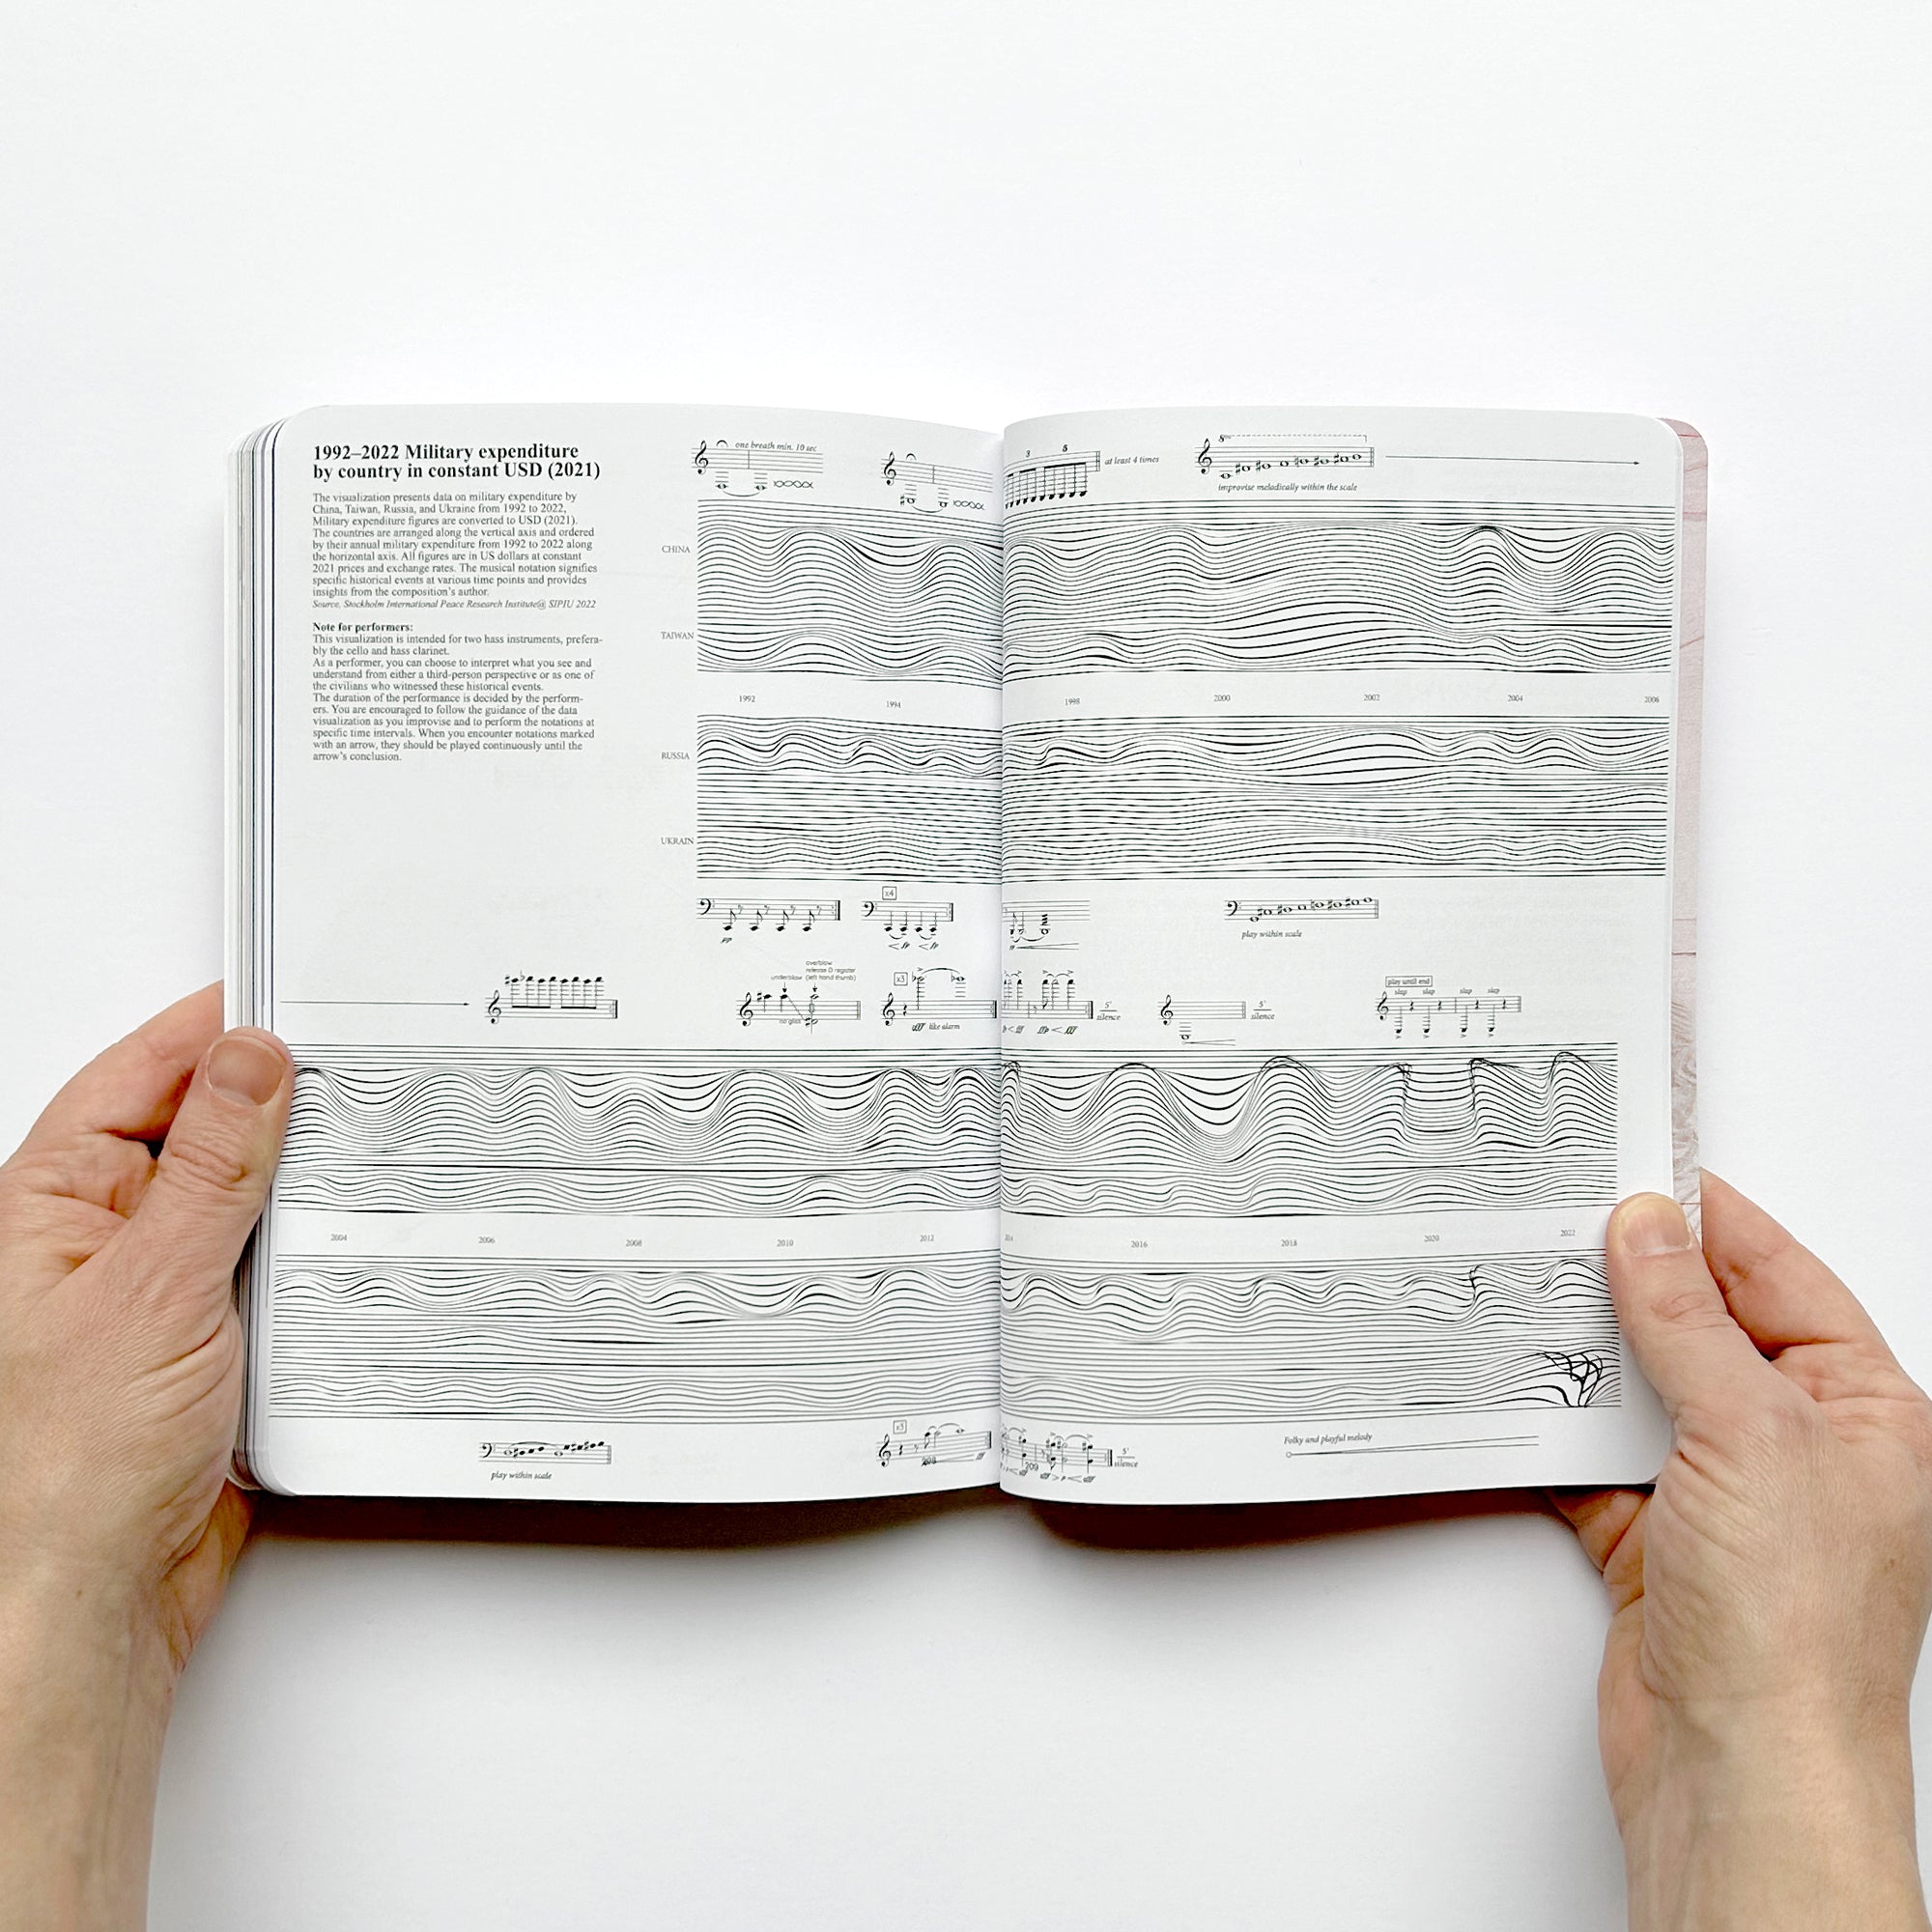 1992–2022 Military expenditure
by country in constant USD (2021)
The visualization presents data on military expenditure by
China, Taiwan, Russia, and Ukraine from 1992 to 2022,
Military expenditure figures are converted to USD (2021).
The countries are arranged along the vertical axis and ordered
by their annual military expenditure from 1992 to 2022 along
the horizontal axis. All figures are in US dollars at constant
2021 prices and exchange rates. The musical notation signifies
specific historical events at various time points and provides
insights from the composition's author.
Source, Stockholm International Peace Research Institute@ SIPIU 2022
Note for performers:
This visualization is intended for two hass instruments, prefera-
bly the cello and hass clarinet.
As a performer, you can choose to interpret what you see and
understand from either a third-person perspective or as one of
the civilians who witnessed these historical events.
The duration of the performance is decided by the perform-
ers. You are encouraged to follow the guidance of the data
visualization as you improvise and to perform the notations at
specific time intervals. When you encounter notations marked
with an arrow, they should be played continuously until the
arrow's conclusion.
one breath min. 10 sec
3 5
at least 4 times
8va
improvise melodically within the scale
CHINA
TAIWAN
1992 1994 1998 2000 2002 2004 2006
RUSSIA
UKRAIN
pp
x4
fp fp
play within scale
underblow
overblow
release D register
(left hand thumb)
no gliss
x3
fff like alarm
5'
silence
5'
silence
play until end
slap slap slap slap
2004 2006 2008 2010 2012 2016 2018 2020 2022
play within scale
x5
208
209
5'
silence
Folky and playful melody